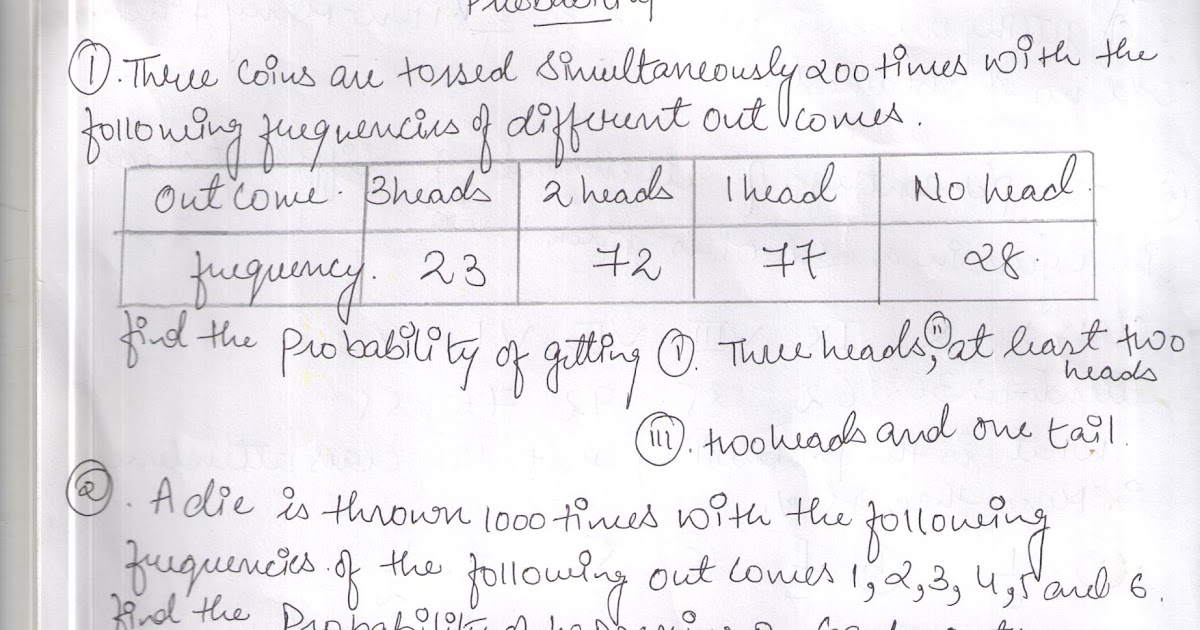 Probability
①. Three coins are tossed simultaneously 200 times with the
following frequencies of different out comes.
Out come. 3heads 2 heads 1 head No head.
frequency. 23 72 77 28.
find the Probability of getting ⓘ. Three heads, ⓘⓘ at least two
heads
ⓘⓘⓘ. two heads and one tail.
②. A die is thrown 1000 times with the following
frequencies of the following out comes 1, 2, 3, 4, 5 and 6.
find the Probability of